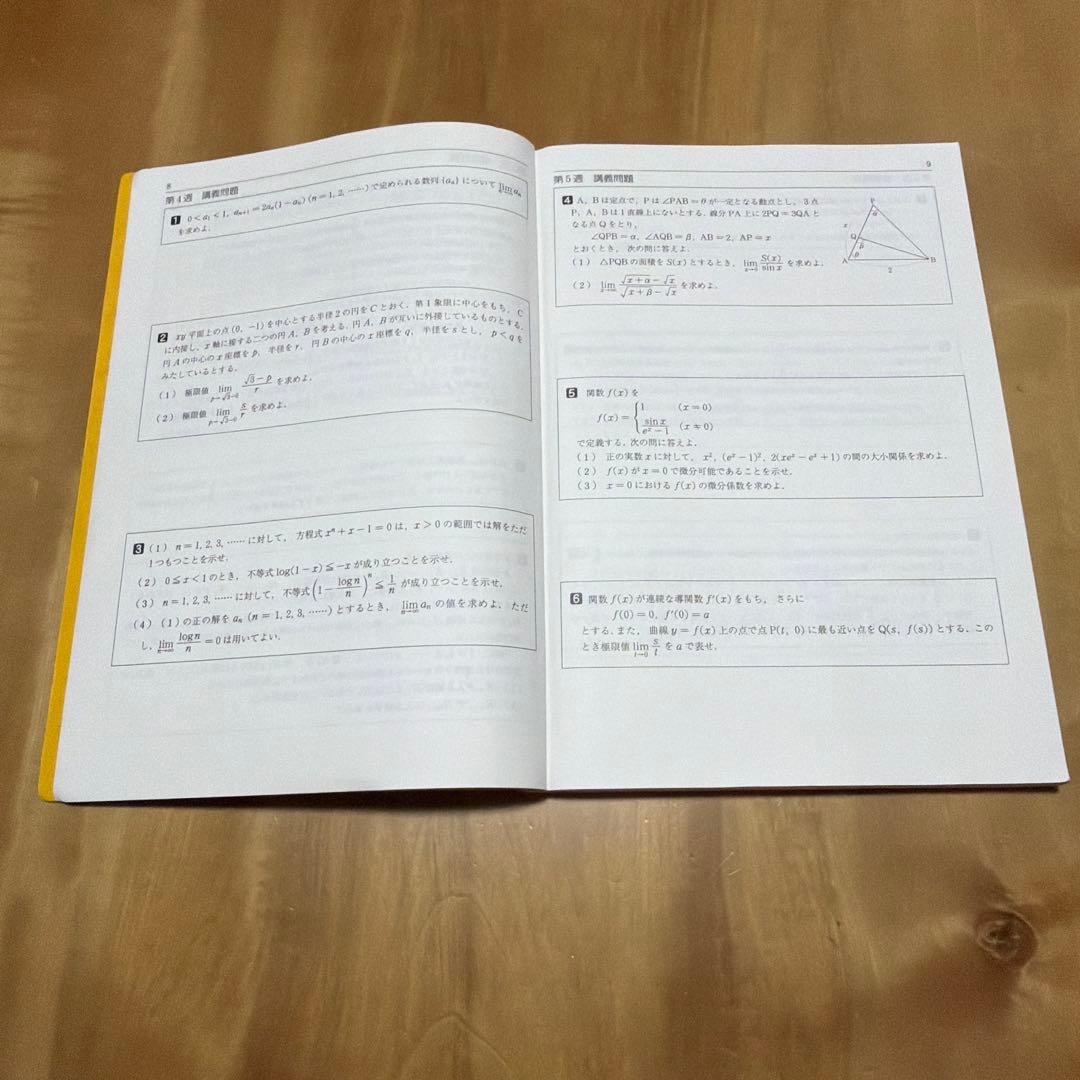 8
第4週 講義問題
1 0<a₁<1, aₙ₊₁=2aₙ(1-aₙ) (n=1, 2, ……) で定められる数列{aₙ}について lim aₙ
n→∞
を求めよ.
2 xy平面上の点(0, -1)を中心とする半径2の円をCとおく. 第1象限に中心をもち, C
に内接し, x軸に接する二つの円A, Bを考える. 円A, Bが互いに外接しているものとする.
円Aの中心のx座標をp, 半径をr, 円Bの中心のx座標をq, 半径をsとし, p<qを
みたしているとする.
(1) 極限値 lim_{p→√3-0} (√3-p)/r を求めよ.
(2) 極限値 lim_{p→√3-0} s/r を求めよ.
3 (1) n=1, 2, 3, …… に対して, 方程式 xⁿ+x-1=0は, x>0の範囲では解をただ
1つもつことを示せ.
(2) 0≦x<1のとき, 不等式 log(1-x)≦-x が成り立つことを示せ.
(3) n=1, 2, 3, …… に対して, 不等式 (1-(log n)/n)ⁿ≦1/n が成り立つことを示せ.
(4) (1)の正の解を aₙ (n=1, 2, 3, ……) とするとき, lim_{n→∞} aₙ の値を求めよ. ただ
し, lim_{n→∞} (log n)/n=0は用いてよい.
9
第5週 講義問題
4 A, Bは定点で, Pは∠PAB=θが一定となる動点とし, 3点
P, A, Bは1直線上にないとする. 線分PA上に2PQ=3QAと
なる点Qをとり,
∠QPB=α, ∠AQB=β, AB=2, AP=x
とおくとき, 次の問に答えよ.
(1) △PQBの面積をS(x)とするとき, lim_{x→0} S(x)/sin x を求めよ.
(2) lim_{x→∞} (√(x+α)-√x)/(√(x+β)-√x) を求めよ.
P
α
x
Q
β
A
B
2
5 関数 f(x)を
f(x)={1 (x=0)
(sin x)/(eˣ-1) (x≠0)
で定義する. 次の問に答えよ.
(1) 正の実数xに対して, x², (eˣ-1)², 2(xeˣ-eˣ+1)の間の大小関係を求めよ.
(2) f(x)がx=0で微分可能であることを示せ.
(3) x=0におけるf(x)の微分係数を求めよ.
6 関数 f(x)が連続な導関数 f′(x)をもち, さらに
f(0)=0, f′(0)=a
とする. また, 曲線 y=f(x)上の点で点P(t, 0)に最も近い点をQ(s, f(s))とする. この
とき極限値 lim_{t→0} s/t をaで表せ.